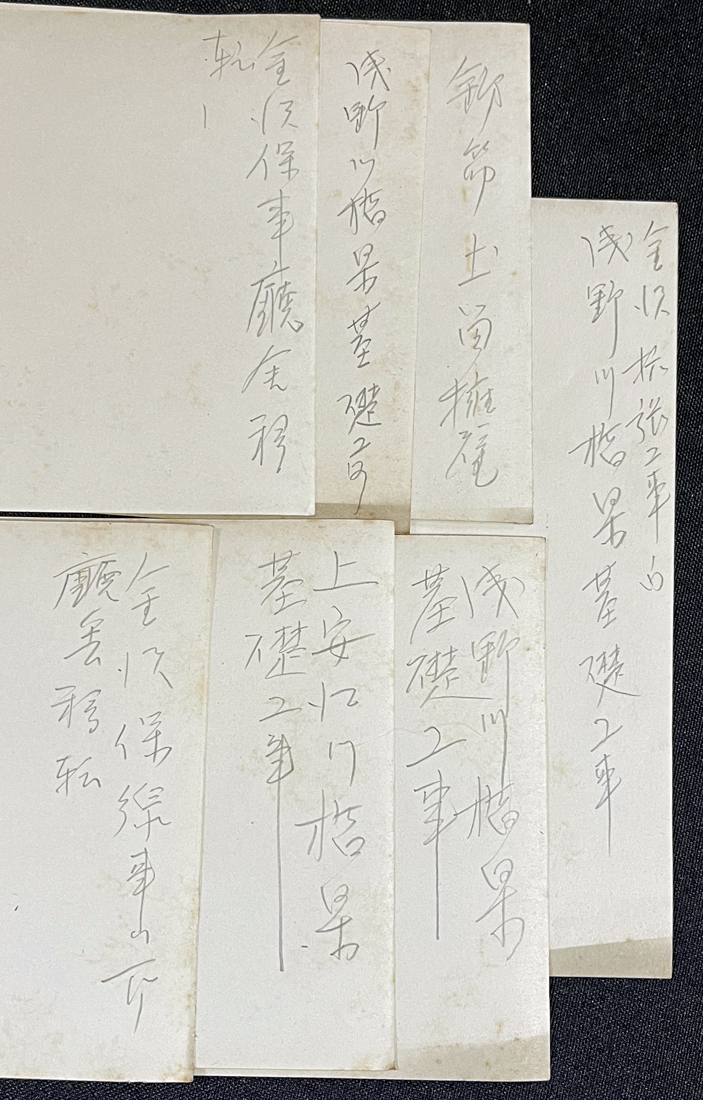 金沢拡張工事内
浅野川橋梁基礎工事
鉄筋土留擁壁
浅野川橋梁基礎工事
金沢保事廳舎移
転
浅野川橋梁
基礎工事
上安江川橋梁
基礎工事
金沢保線事ム所
廳舎移転